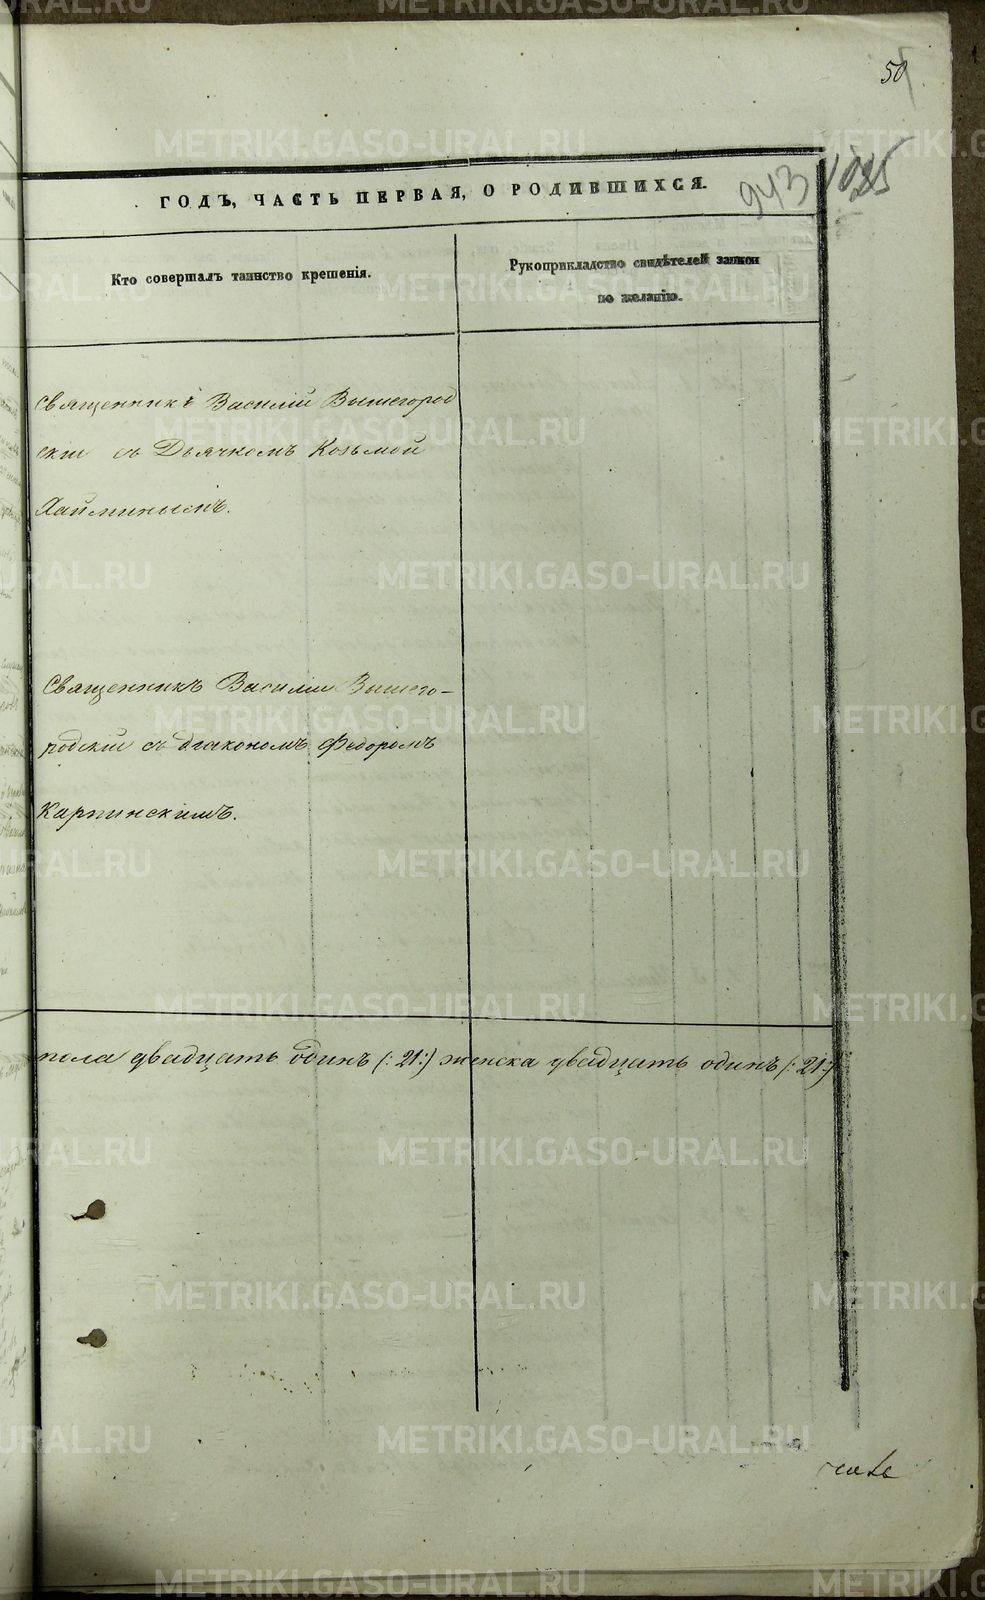 50
943 1025
ГОДЪ, ЧАСТЬ ПЕРВАЯ, О РОДИВШИХСЯ.
Кто совершалъ таинство крещенія.
Рукоприкладство свидѣтелей записи
по желанію.
Священникъ Василій Вышегород
скій съ Дьячкомъ Козьмой
Хайминымъ.
Священникъ Василій Вышего-
родскій съ діакономъ Федоромъ
Карпинскимъ.
пола двадцать одинъ (:21:) женска двадцать одинъ (:21:)
METRIKI.GASO-URAL.RU